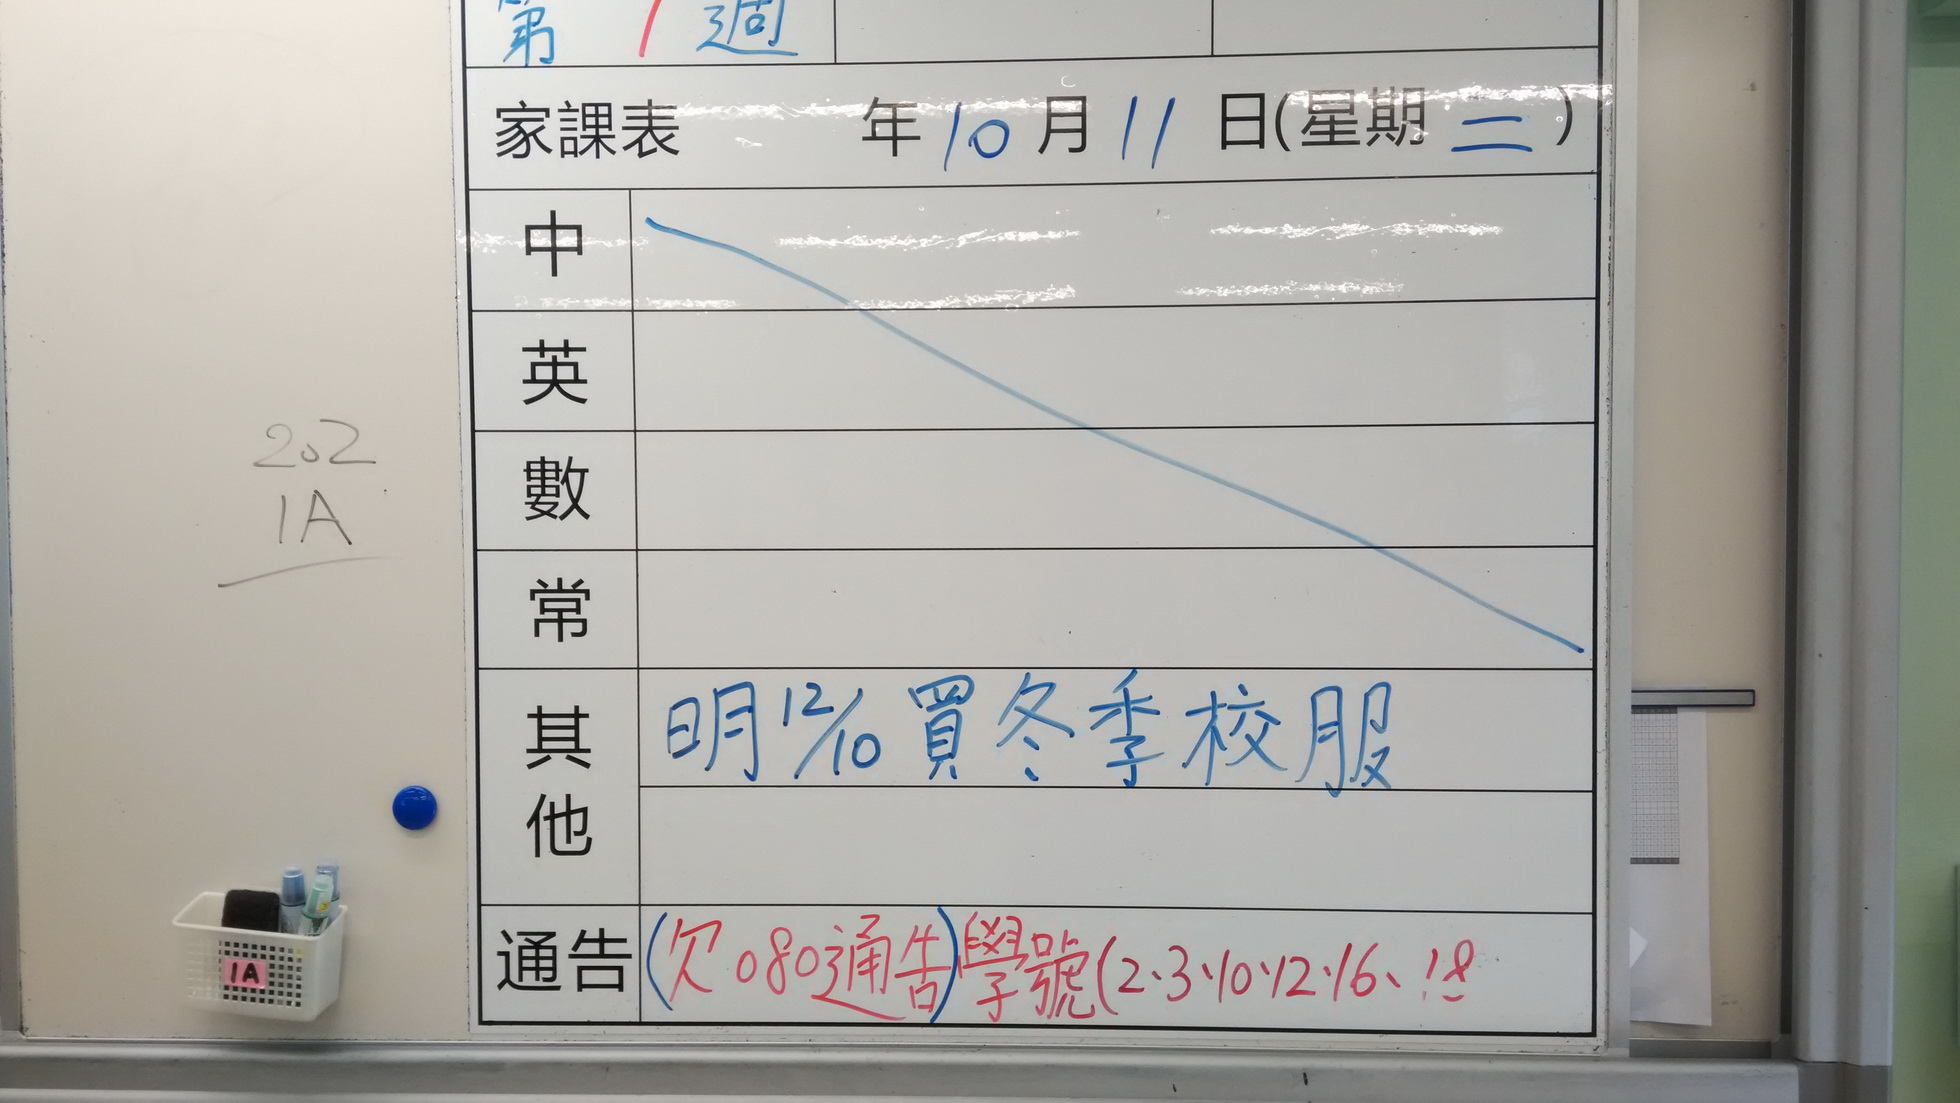 第1週
家課表 年10月11日(星期二)
中
英
數
常
其他 明12/10買冬季校服
通告 (欠080通告)學號(2、3、10、12、16、18
202
1A
1A